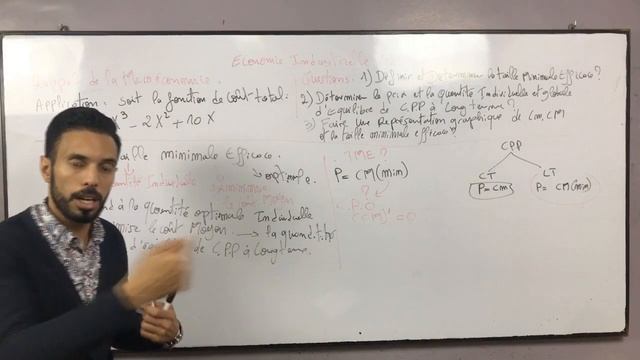 Economie Industrielle
de la Microéconomie.
Application: soit la fonction de coût total:
x³ - 2x² + 10x
Questions: 1) Définir et Déterminer la taille minimale Efficace?
2) Déterminer le prix et la quantité Individuelle et globale
d'équilibre de C.P.P à Long terme?
3) Faire une Représentation graphique de Cm, CM
et la taille minimale efficace?
taille minimale Efficace.
optimale.
quantité Individuelle
minimise
le coût Moyen
à la quantité optimale Individuelle
le coût Moyen. → la quantité
de C.P.P à Long terme.
TME?
P = CM(min)
?
C.P.O
(CM)' = 0
CPP
CT
P = Cm
LT
P = CM(min)